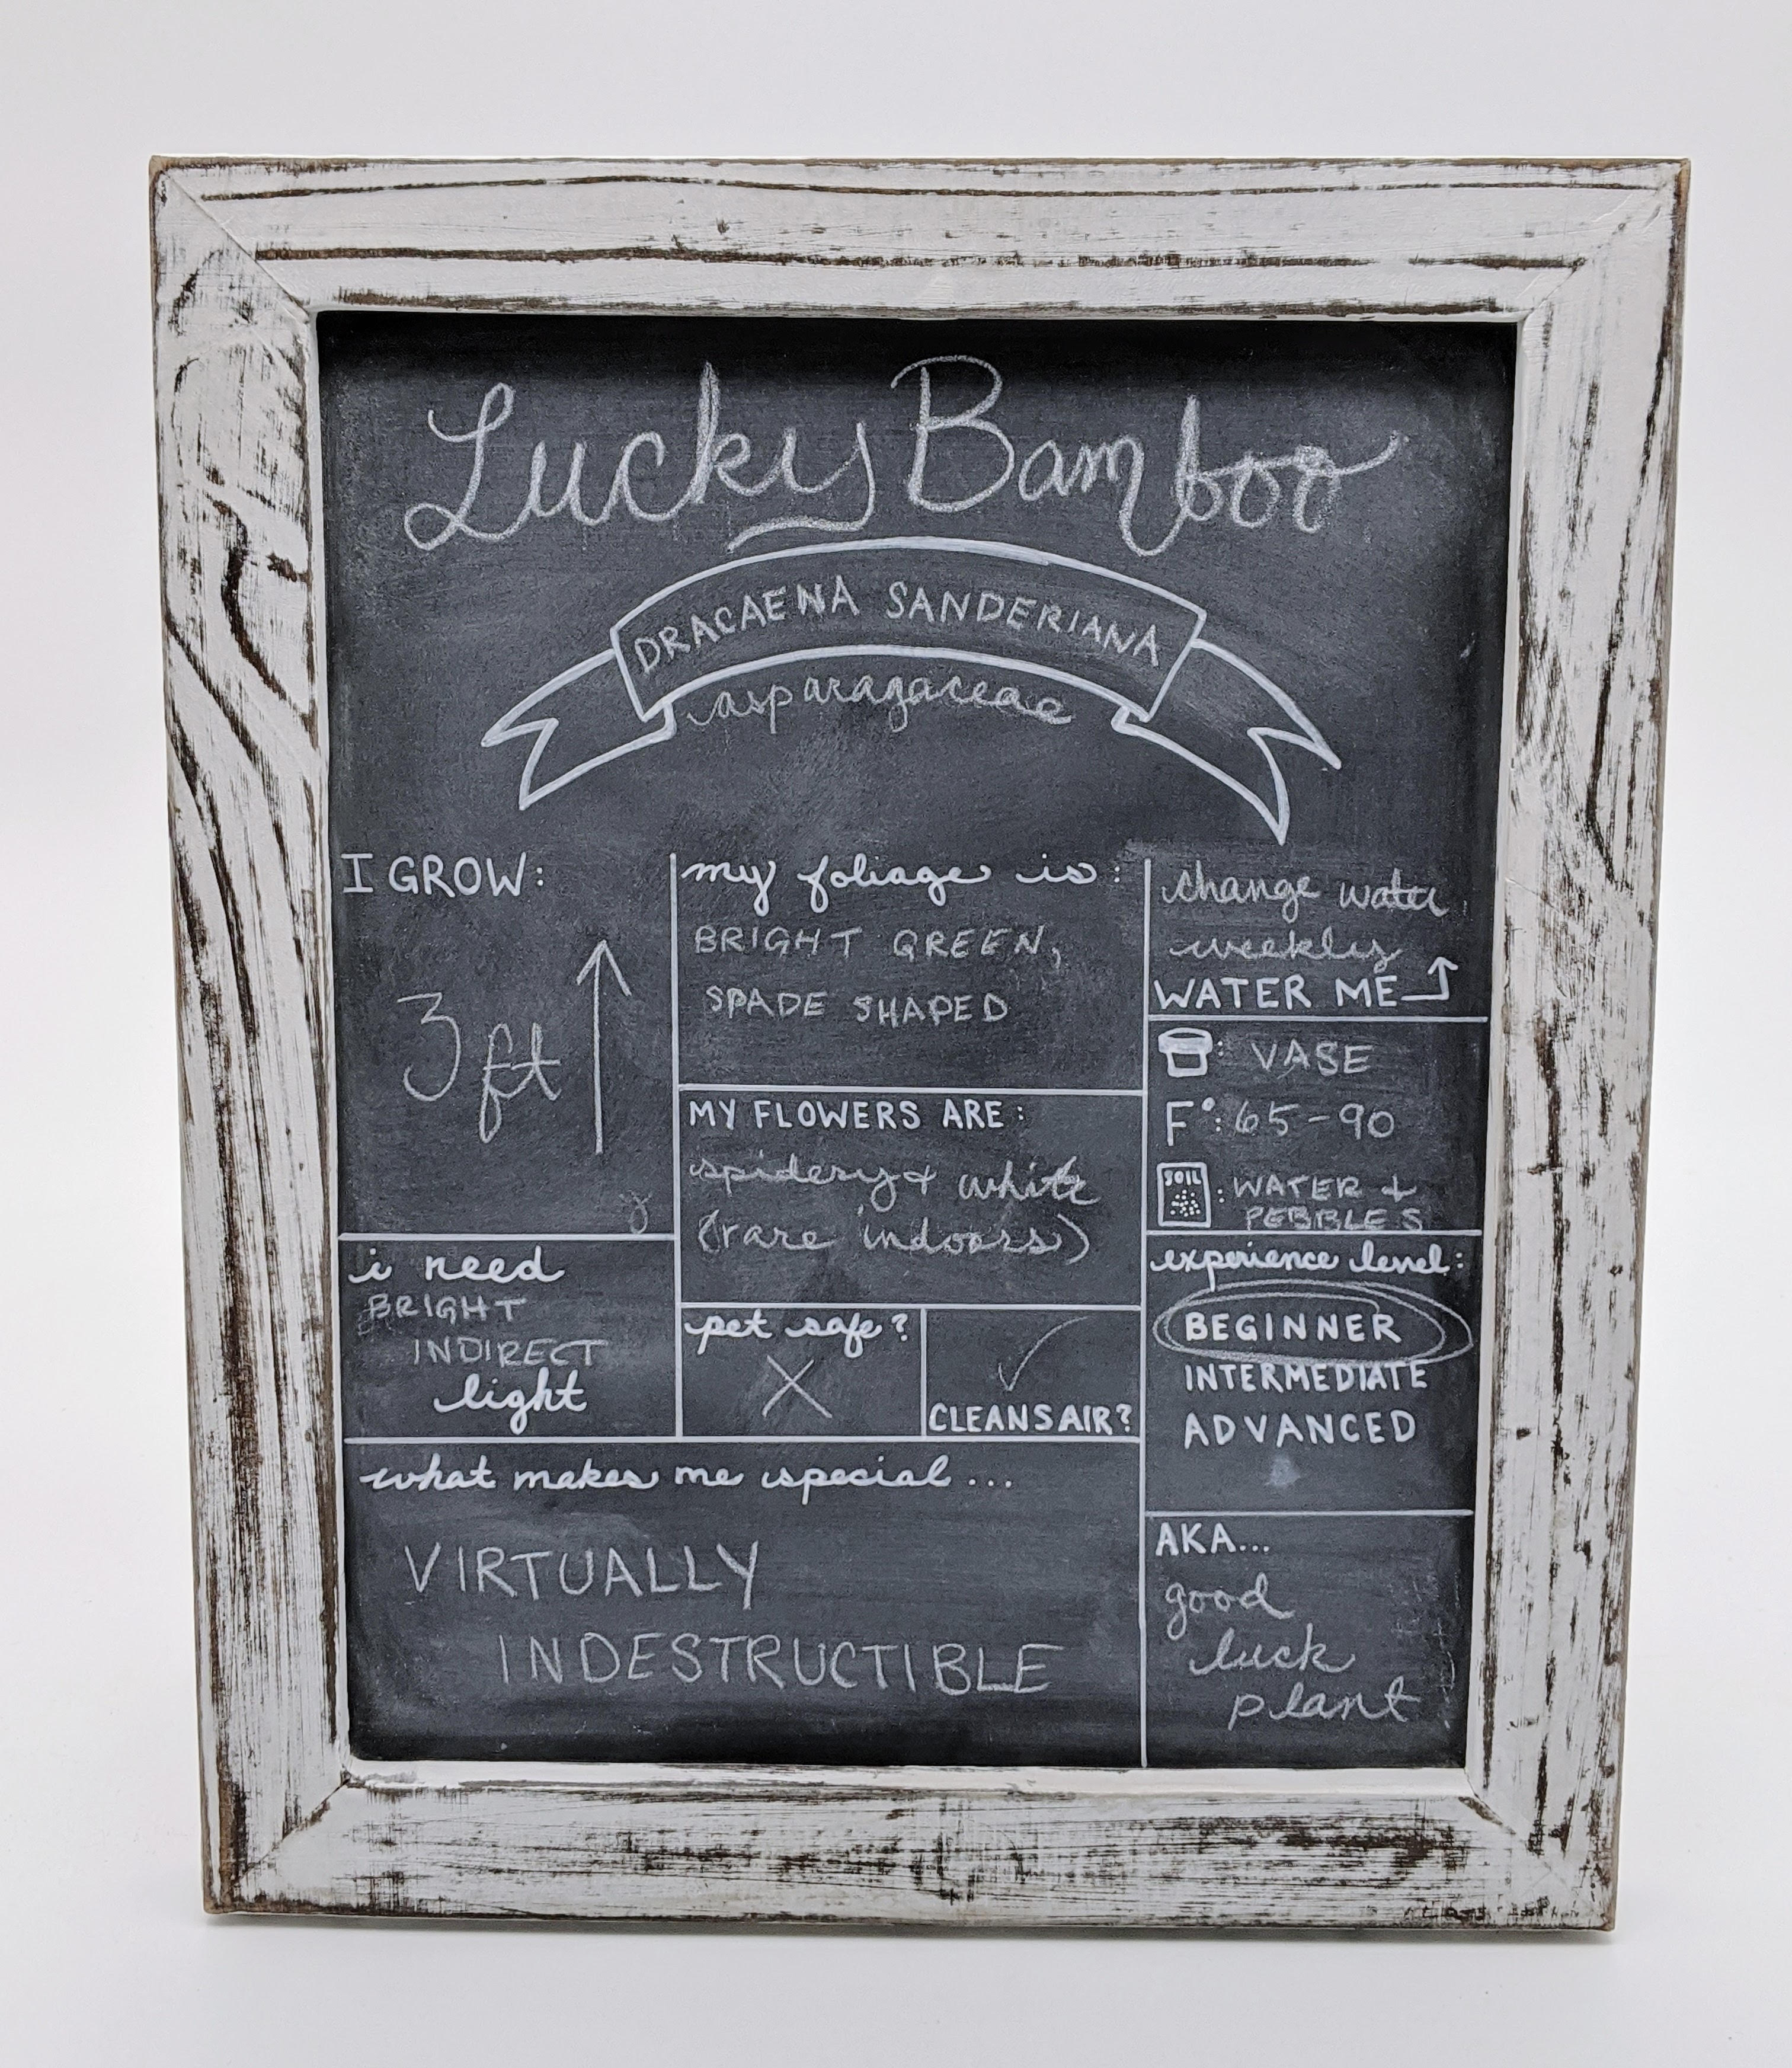 Lucky Bamboo
DRACAENA SANDERIANA
asparagaceae
I GROW:
3 ft
my foliage is:
BRIGHT GREEN,
SPADE SHAPED
change water
weekly
WATER ME
: VASE
F°: 65-90
SOIL : WATER +
PEBBLES
MY FLOWERS ARE:
spidery + white
(rare indoors)
i need
BRIGHT
INDIRECT
light
pet safe?
X
CLEANS AIR?
experience level:
BEGINNER
INTERMEDIATE
ADVANCED
what makes me special...
VIRTUALLY
INDESTRUCTIBLE
AKA...
good
luck
plant